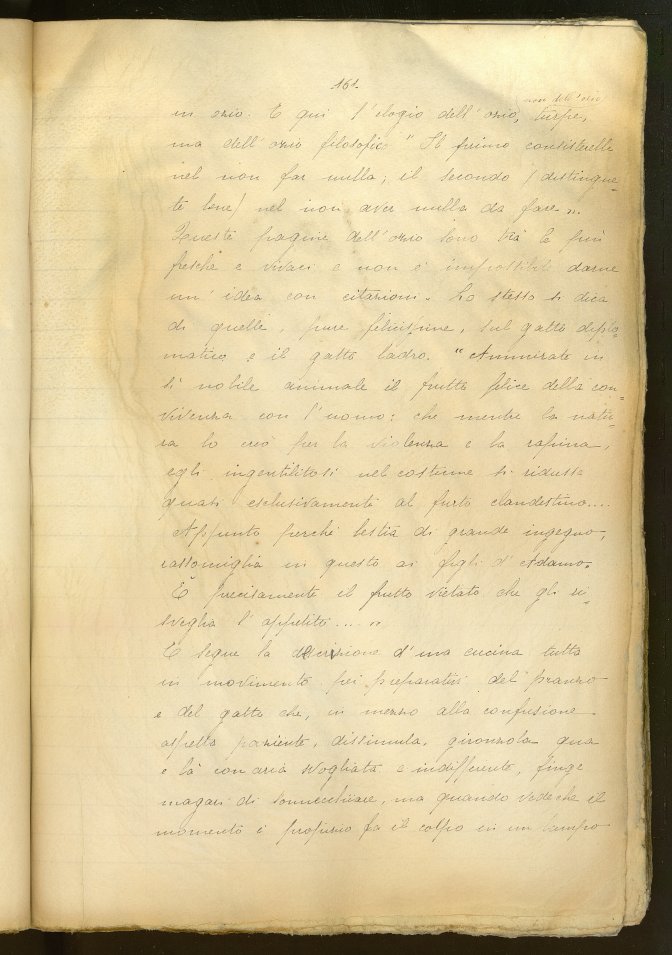 161.
non dell'ozio
in ozio. E qui l'elogio dell'ozio, turpe,
ma dell'ozio filosofico "Il primo consisterebbe
nel non far nulla; il secondo (distingue-
te bene) nel non aver nulla da fare".
Queste pagine dell'ozio sono tra le più
fresche e vivaci e non è impossibile darne
un'idea con citazioni. Lo stesso si dica
di quelle, pure felicissime, sul gatto diplo-
matico e il gatto ladro. "Ammirate in
sì nobile animale il frutto felice della con-
vivenza con l'uomo: che mentre la natu-
ra lo creò per la violenza e la rapina,
egli ingentilitosi nel costume si ridusse
quasi esclusivamente al furto clandestino....
Appunto perchè bestia di grande ingegno,
rassomiglia in questo ai figli d'Adamo.
È precisamente il frutto vietato che gli ri-
sveglia l'appetito...."
E segue la descrizione d'una cucina tutta
in movimento pei preparativi del pranzo
e del gatto che, in mezzo alla confusione
aspetta paziente, dissimula, gironzola qua
e là con aria svogliata e indifferente, finge
magari di sonnecchiare, ma quando vede che il
momento è propizio fa il colpo in un lampo